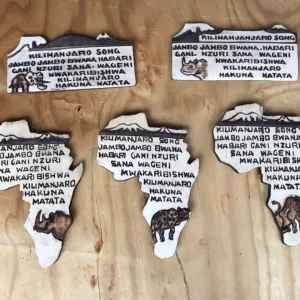 KILIMANJARO SONG
JAMBO JAMBO BWANA HABARI
GANI NZURI SANA WAGENI
MWAKARIBISHWA
KILIMANJARO
HAKUNA
MATATA
KILIMANJARO SONG
JAMBO JAMBO BWANA HABARI
GANI NZURI SANA WAGENI
MWAKARIBISHWA
KILIMANJARO
HAKUNA MATATA
KILIMANJARO SONG
JAMBO JAMBO BWANA
HABARI GANI NZURI
SANA WAGENI
MWAKARIBISHWA
KILIMANJARO
HAKUNA
MATATA
KILIMANJARO SONG
JAMBO JAMBO BWANA
HABARI GANI NZURI
SANA WAGENI
MWAKARIBISHWA
KILIMANJARO
HAKUNA
MATATA
KILIMANJARO SONG
JAMBO JAMBO BWANA
HABARI GANI NZURI
SANA WAGENI
MWAKARIBISHWA
KILIMANJARO
HAKUNA
MATATA